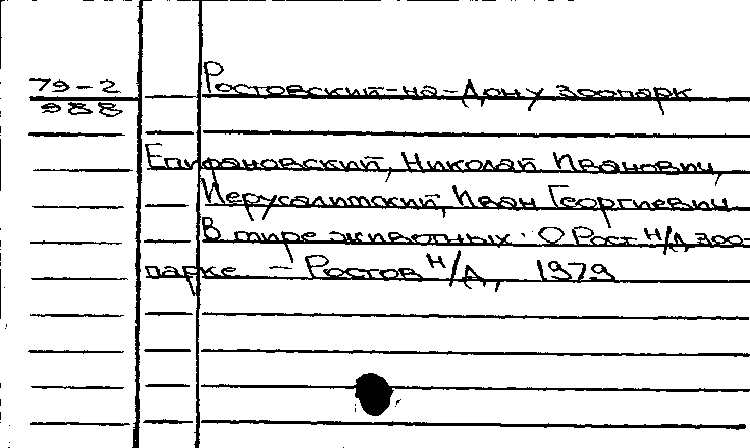 79-2
988
Ростовский-на-Дону зоопарк
Епифановский, Николай Иванович,
Иерусалимский, Иван Георгиевич
В мире животных: О Рост. н/Д зоо-
парке. – Ростов н/Д, 1979